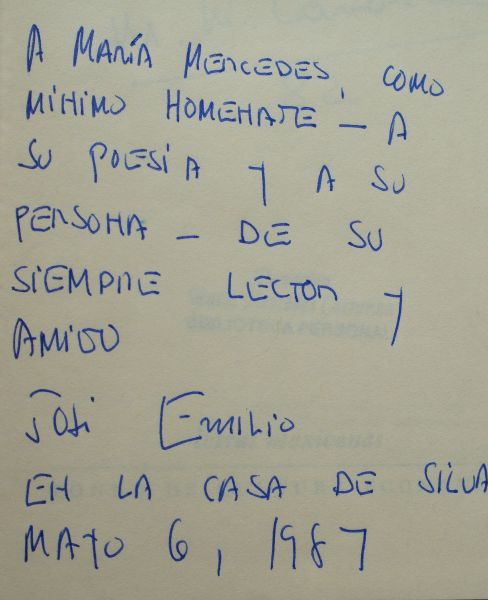 A MARÍA MERCEDES, COMO
MÍNIMO HOMENAJE — A
SU POESÍA Y A SU
PERSONA — DE SU
SIEMPRE LECTOR Y
AMIGO
José Emilio
EN LA CASA DE SILVA
MAYO 6, 1987